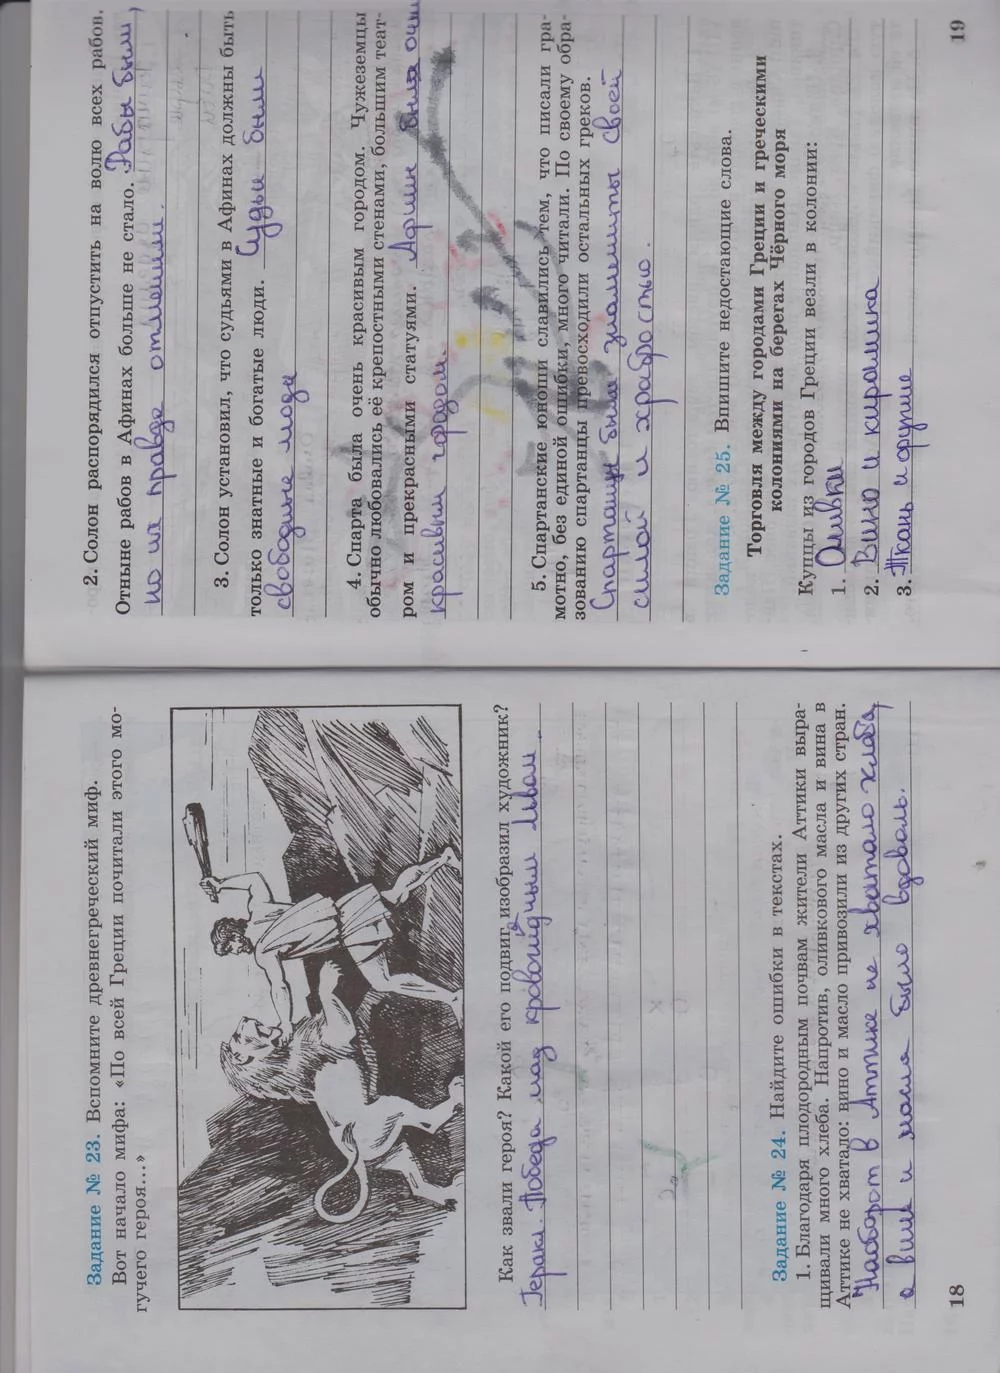 Задание № 23. Вспомните древнегреческий миф.
Вот начало мифа: «По всей Греции почитали этого мо-
гучего героя...»
Как звали героя? Какой его подвиг изобразил художник?
Геракл. Победа над кровожидным Львом.
Задание № 24. Найдите ошибки в текстах.
1. Благодаря плодородным почвам жители Аттики выра-
щивали много хлеба. Напротив, оливкового масла и вина в
Аттике не хватало: вино и масло привозили из других стран.
Наоборот в Аттике не хватало хлеба,
а вина и масла было вдоволь.
18
2. Солон распорядился отпустить на волю всех рабов.
Отныне рабов в Афинах больше не стало. Рабы были,
но их правда отменили.
3. Солон установил, что судьями в Афинах должны быть
только знатные и богатые люди. Судьи были
свободные люди
4. Спарта была очень красивым городом. Чужеземцы
обычно любовались её крепостными стенами, большим теат-
ром и прекрасными статуями. Афин была очень
красивым городом.
5. Спартанские юноши славились тем, что писали гра-
мотно, без единой ошибки, много читали. По своему обра-
зованию спартанцы превосходили остальных греков.
Спартанцы были знамениты своей
силой и храбростью.
Задание № 25. Впишите недостающие слова.
Торговля между городами Греции и греческими
колониями на берегах Чёрного моря
Купцы из городов Греции везли в колонии:
1. Оливки
2. Вино и кирамика
3. Ткань и оружие
19